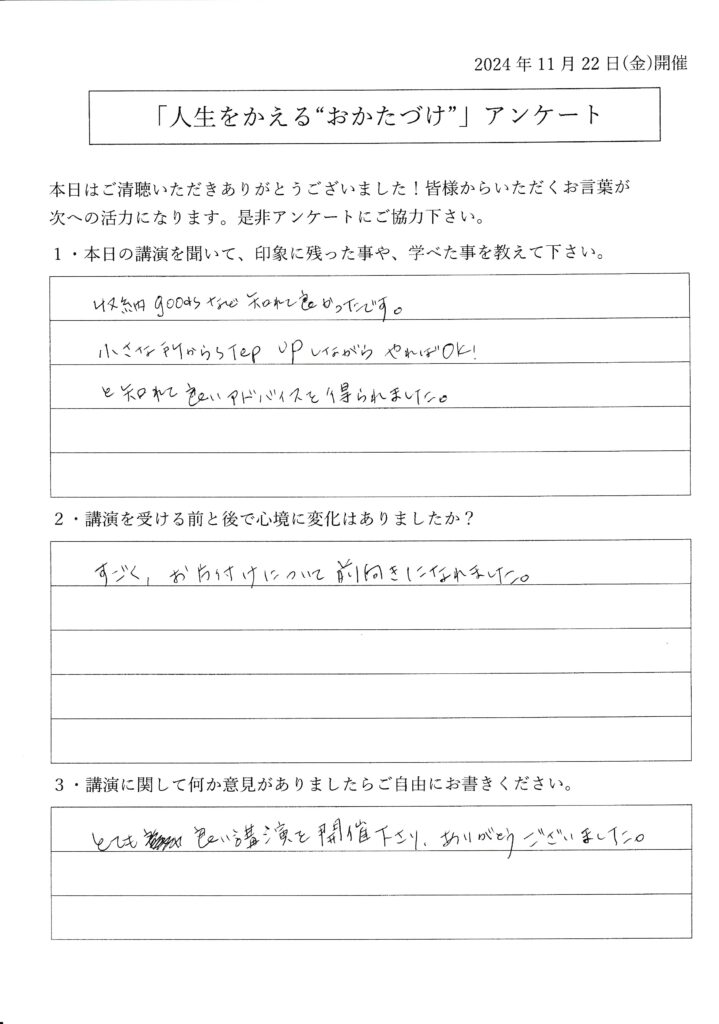 2024 年 11 月 22 日(金)開催
「人生をかえる“おかたづけ”」アンケート
本日はご清聴いただきありがとうございました！皆様からいただくお言葉が
次への活力になります。是非アンケートにご協力下さい。
１・本日の講演を聞いて、印象に残った事や、学べた事を教えて下さい。
収納goodsなど知れて良かったです。
小さな所からstep UPしながら やればOK!
と知れて良いアドバイスを得られました。
２・講演を受ける前と後で心境に変化はありましたか？
すごく、お片付けについて前向きになれました。
３・講演に関して何か意見がありましたらご自由にお書きください。
とても 良い講演を開催下さり、ありがとうございました。